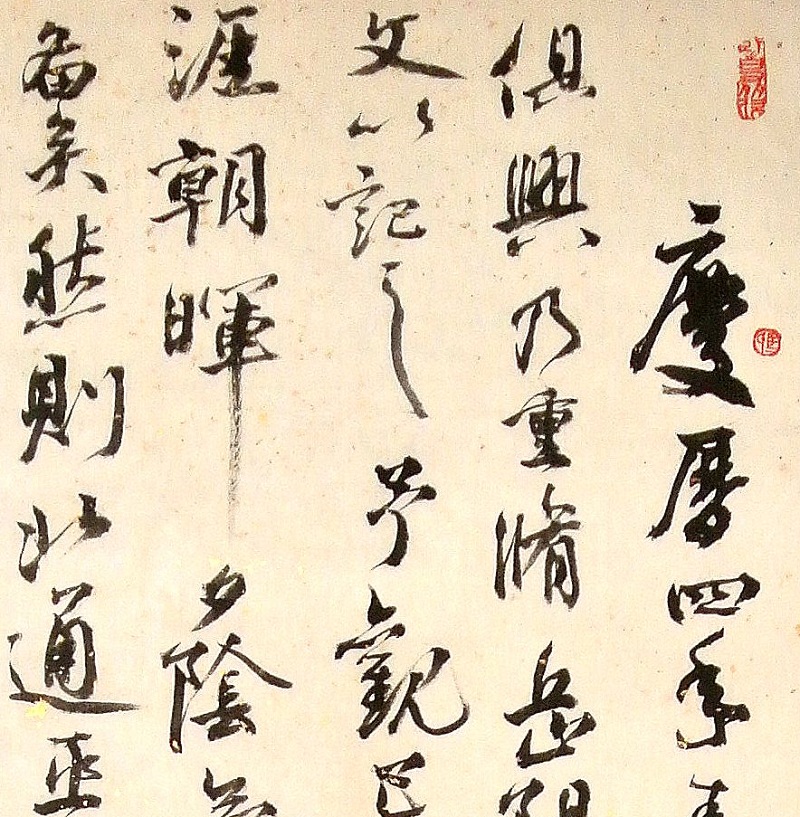 慶曆四年春
俱興乃重脩岳陽
文以記之予觀巴
涯朝暉夕陰氣
備矣然則北通巫